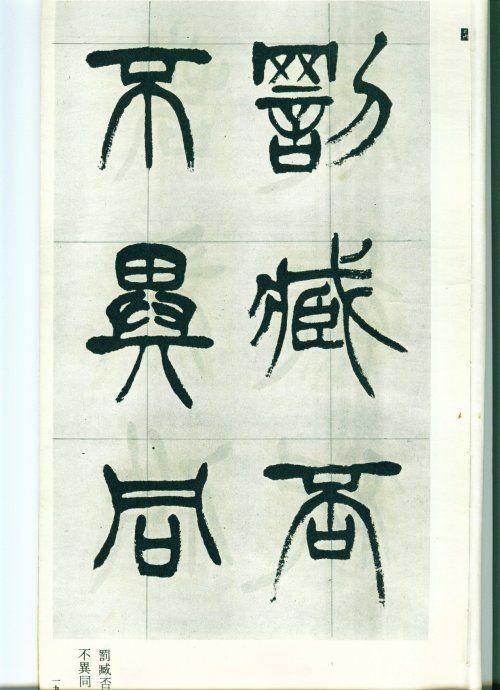 罰臧否
不異同
罰臧否
不異同